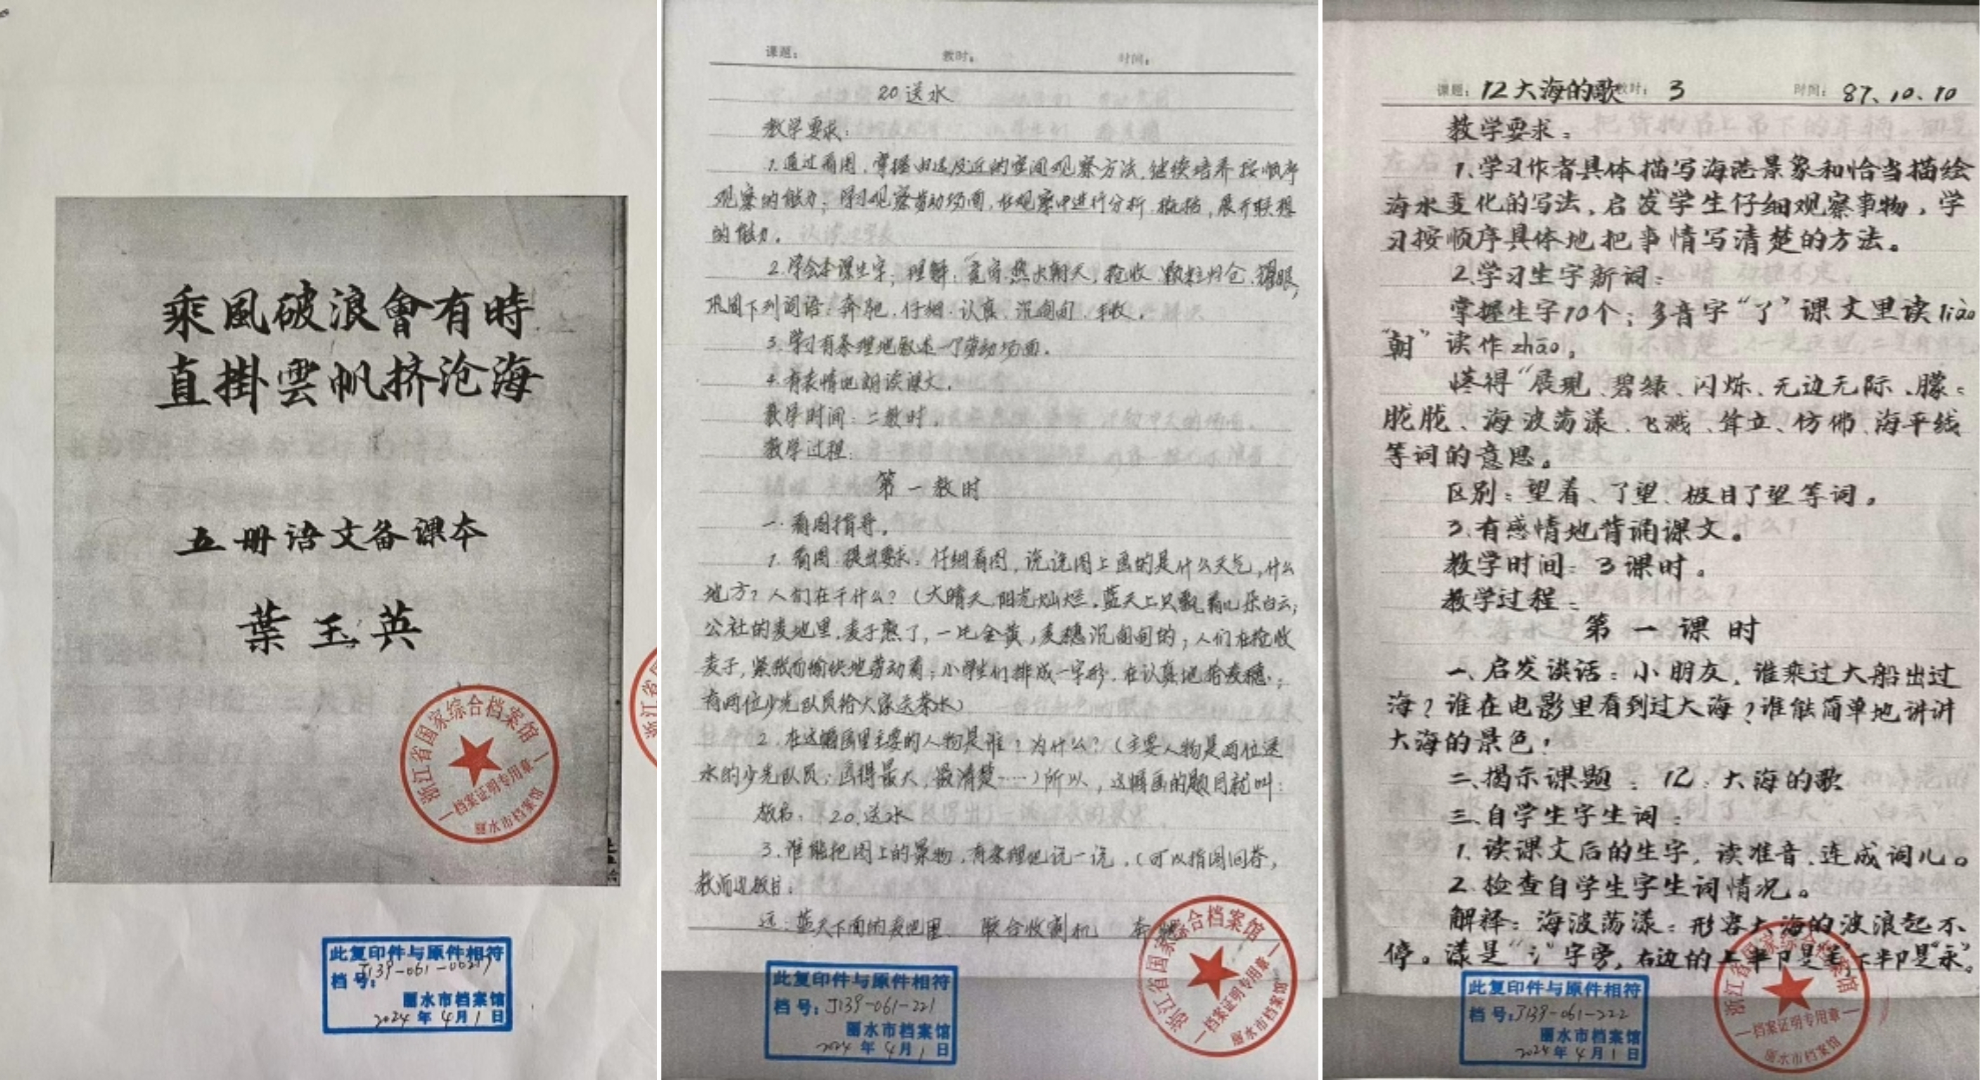 乘風破浪會有時
直掛雲帆挤沧海
五册语文备课本
葉玉英
浙江省国家综合档案馆
档案证明专用章
丽水市档案馆
此复印件与原件相符
档号:J139-061-
丽水市档案馆
2024年4月1日
课题: 教时: 时间:
20 送水
教学要求:
1.通过看图,掌握由远及近的空间观察方法,继续培养按顺序
观察的能力;学习观察劳动场面,在观察中进行分析、概括,展开联想
的能力。
2.学会本课生字,理解:竟宽、热火朝天,抢收、颗粒归仓、耀眼,
巩固下列词语:奔驰、仔细、认真、沉甸甸、丰收。
3.学习有条理地叙述一个劳动场面。
4.有表情地朗读课文。
教学时间:二教时。
教学过程:
第一教时
一.看图指导。
1.看图,提出要求:仔细看图,说说图上画的是什么天气,什么
地方?人们在干什么?(大晴天,阳光灿烂,蓝天上只飘着几朵白云;
公社的麦地里,麦子熟了,一片金黄,麦穗沉甸甸的;人们在抢收
麦子,紧张而愉快地劳动着;小学生们排成一字形,在认真地拾麦穗;
有两位少先队员给大家送茶水)
2.在这幅图里主要的人物是谁?为什么?(主要人物是两位送
水的少先队员;画得最大,最清楚……)所以,这幅画的题目就叫:
板书:20.送水
3.谁能把图上的景物,有条理地说一说,(可以指图回答,
教师边板书:
远:蓝天下面的麦地里 联合收割机 奔驰
浙江省国家综合档案馆
档案证明专用章
丽水市档案馆
此复印件与原件相符
档号:J139-061-221
丽水市档案馆
2024年4月1日
课题:12大海的歌 教时:3 时间:87.10.10
教学要求:
1.学习作者具体描写海港景象和恰当描绘
海水变化的写法,启发学生仔细观察事物,学
习按顺序具体地把事情写清楚的方法。
2.学习生字新词:
掌握生字10个;多音字“了”课文里读liào
“朝”读作zhāo。
懂得“展现、碧绿、闪烁、无边无际、朦
胧胧、海波荡漾、飞溅、耸立、仿佛、海平线
等词的意思。
区别:望着、了望、极目了望等词。
3.有感情地背诵课文。
教学时间:3课时。
教学过程:
第一课时
一、启发谈话:小朋友,谁乘过大船出过
海?谁在电影里看到过大海?谁能简单地讲讲
大海的景色!
二.揭示课题:12.大海的歌
三.自学生字生词:
1.读课文后的生字,读准音、连成词儿。
2.检查自学生字生词情况。
解释:海波荡漾:形容大海的波浪起不
停。漾是“氵”字旁,右边的上半卩是羊,下半卩是“永”。
浙江省国家综合档案馆
档案证明专用章
丽水市档案馆
此复印件与原件相符
档号:J139-061-222
丽水市档案馆
2024年4月1日